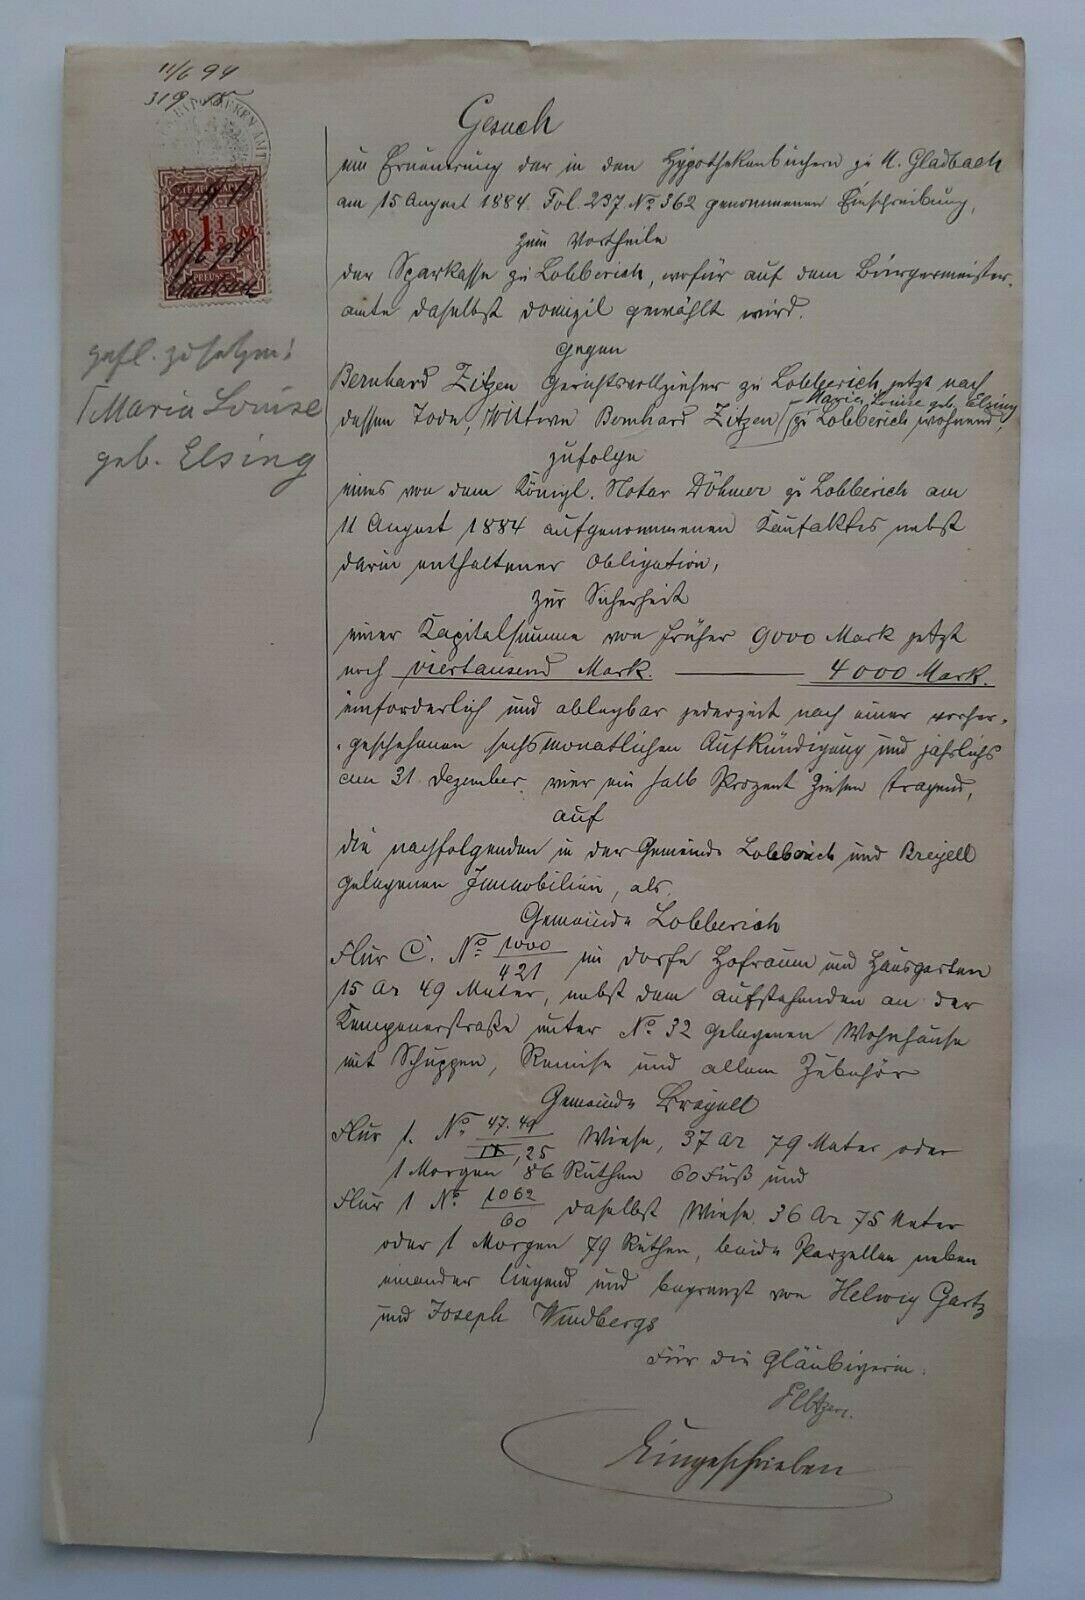 11/6 94
319
HYPOTHEKEN AMT
STEMPELMARKE
M 1½ M
11/6 94
PREUSSEN
gefl. zusetzen!
Maria Louise
geb. Elsing
Gesuch
um Erneuerung der in den Hypothekenbüchern zu M. Gladbach
am 15 August 1884. Fol. 237 No 362 genommenen Einschreibung,
zum Vortheile
der Sparkasse zu Lobberich, wofür auf dem Bürgermeister-
amte daselbst Domizil gewählt wird.
gegen
Bernhard Zitzen Gerichtsvollzieher zu Lobberich, jetzt nach
Maria Louise geb. Elsing
dessen Tode, Wittwe Bernhard Zitzen zu Lobberich wohnend,
zufolge
eines von dem Königl. Notar Döhmer zu Lobberich am
11 August 1884 aufgenommenen Kaufaktes nebst
darin enthaltener Obligation,
zur Sicherheit
einer Kapitalsumme von früher 9000 Mark jetzt
noch viertausend Mark. 4000 Mark.
einforderlich und ablegbar jederzeit nach einer vorher-
-geschehenen sechsmonatlichen Aufkündigung und jährlichs
am 31. Dezember, vier ein halb Prozent Zinsen tragend,
auf
die nachfolgenden in der Gemeinde Lobberich und Breyell
gelegenen Immobilien, als,
Gemeinde Lobberich
Flur C. No 1000/421 im Dorfe Hofraum und Hausgarten
15 Ar 49 Meter, nebst dem aufstehenden an der
Kempenerstraße unter No 32 gelegenen Wohnhause
mit Schuppen, Remise und allem Zubehör
Gemeinde Breyell
Flur 1. No 47.49/25 Wiese, 37 Ar 79 Meter oder
1 Morgen 86 Ruthen 60 Fuß und
Flur 1 No 1062/60 daselbst Wiese 36 Ar 75 Meter
oder 1 Morgen 79 Ruthen, beide Parzellen neben
einander liegend und begrenzt von Helwig Gartz
und Joseph Windbergs
Für die Gläubigerin.
Eingeschrieben